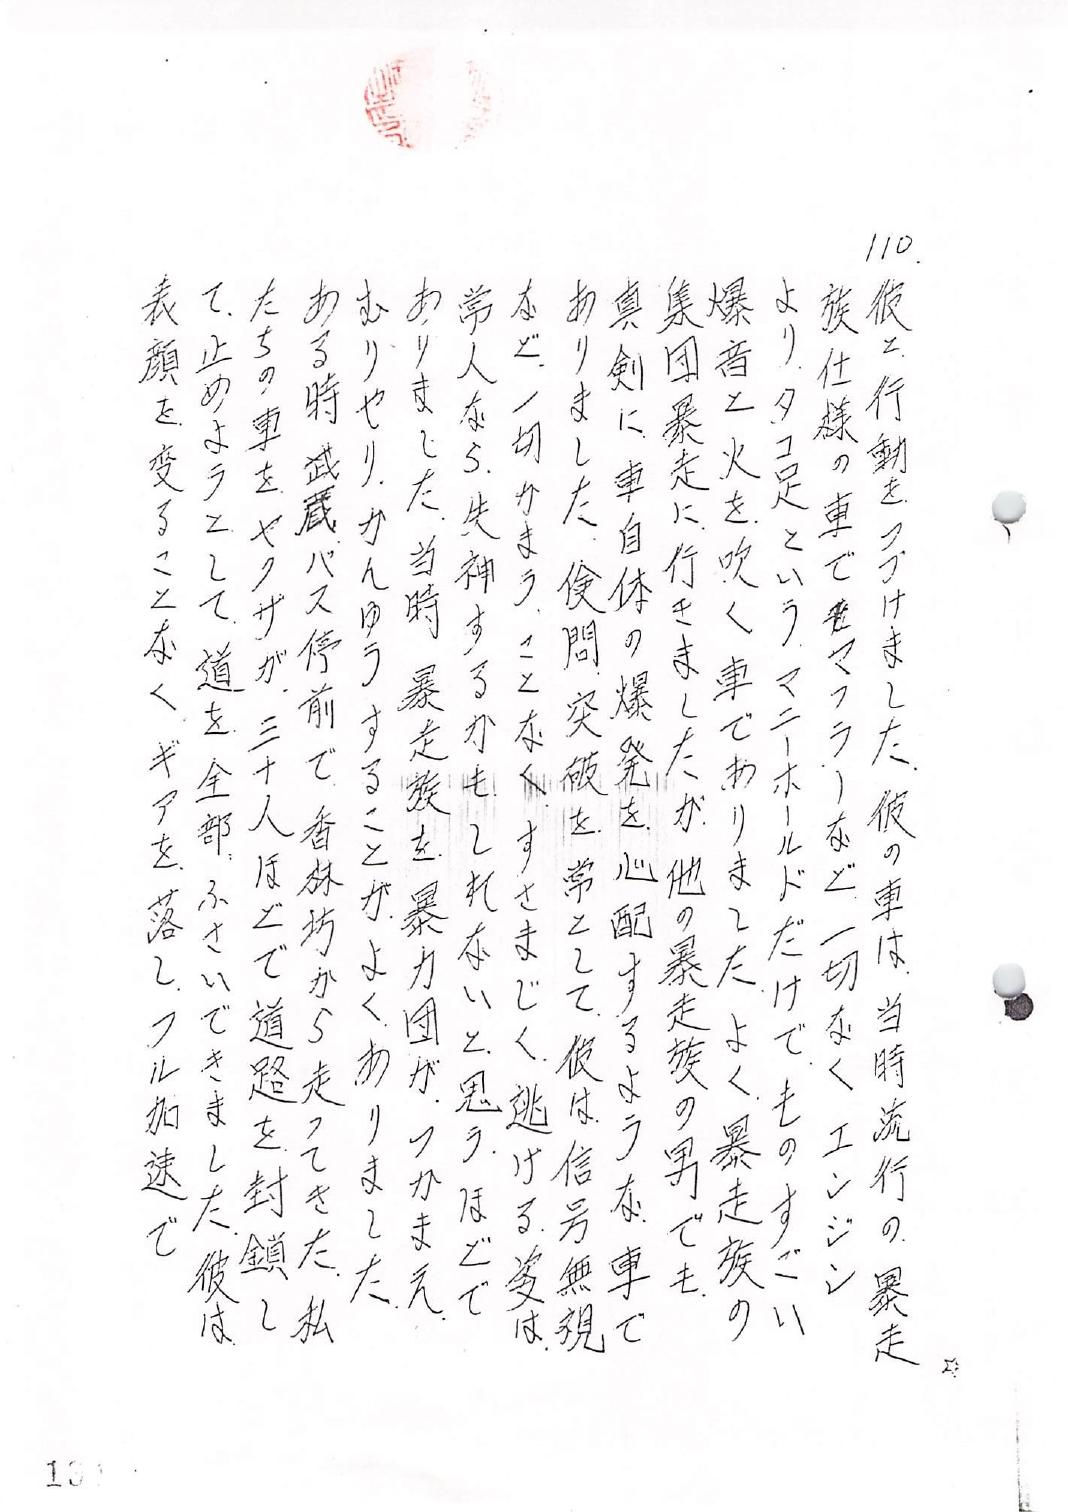 110.
彼と、行動を、つづけました、彼の車は、当時流行の、暴走
族仕様の車で、マフラーなど、一切なく、エンジン
より、タコ足という、マニーホールドだけで、ものすごい
爆音と火を、吹く車でありました、よく、暴走族の
集団暴走に、行きましたが、他の暴走族の男でも、
真剣に、車自体の爆発を、心配するような、車で
ありました、倹問、突破を、常として、彼は、信号無視
など、一切かまう、ことなく、すさまじく、逃げる、姿は、
常人なら、失神するかも、しれないと、思う、ほどで
ありました、当時、暴走族を、暴力団が、つかまえ、
むりやり、かんゆうすることが、よく、ありました、
ある時、武蔵、バス停前で、香林坊から走ってきた、私
たちの車を、ヤクザが、三十人ほどで道路を、封鎖し
て、止めようとして、道を、全部、ふさいできました、彼は、
表顔を、変ることなく、ギアを、落し、フル加速で